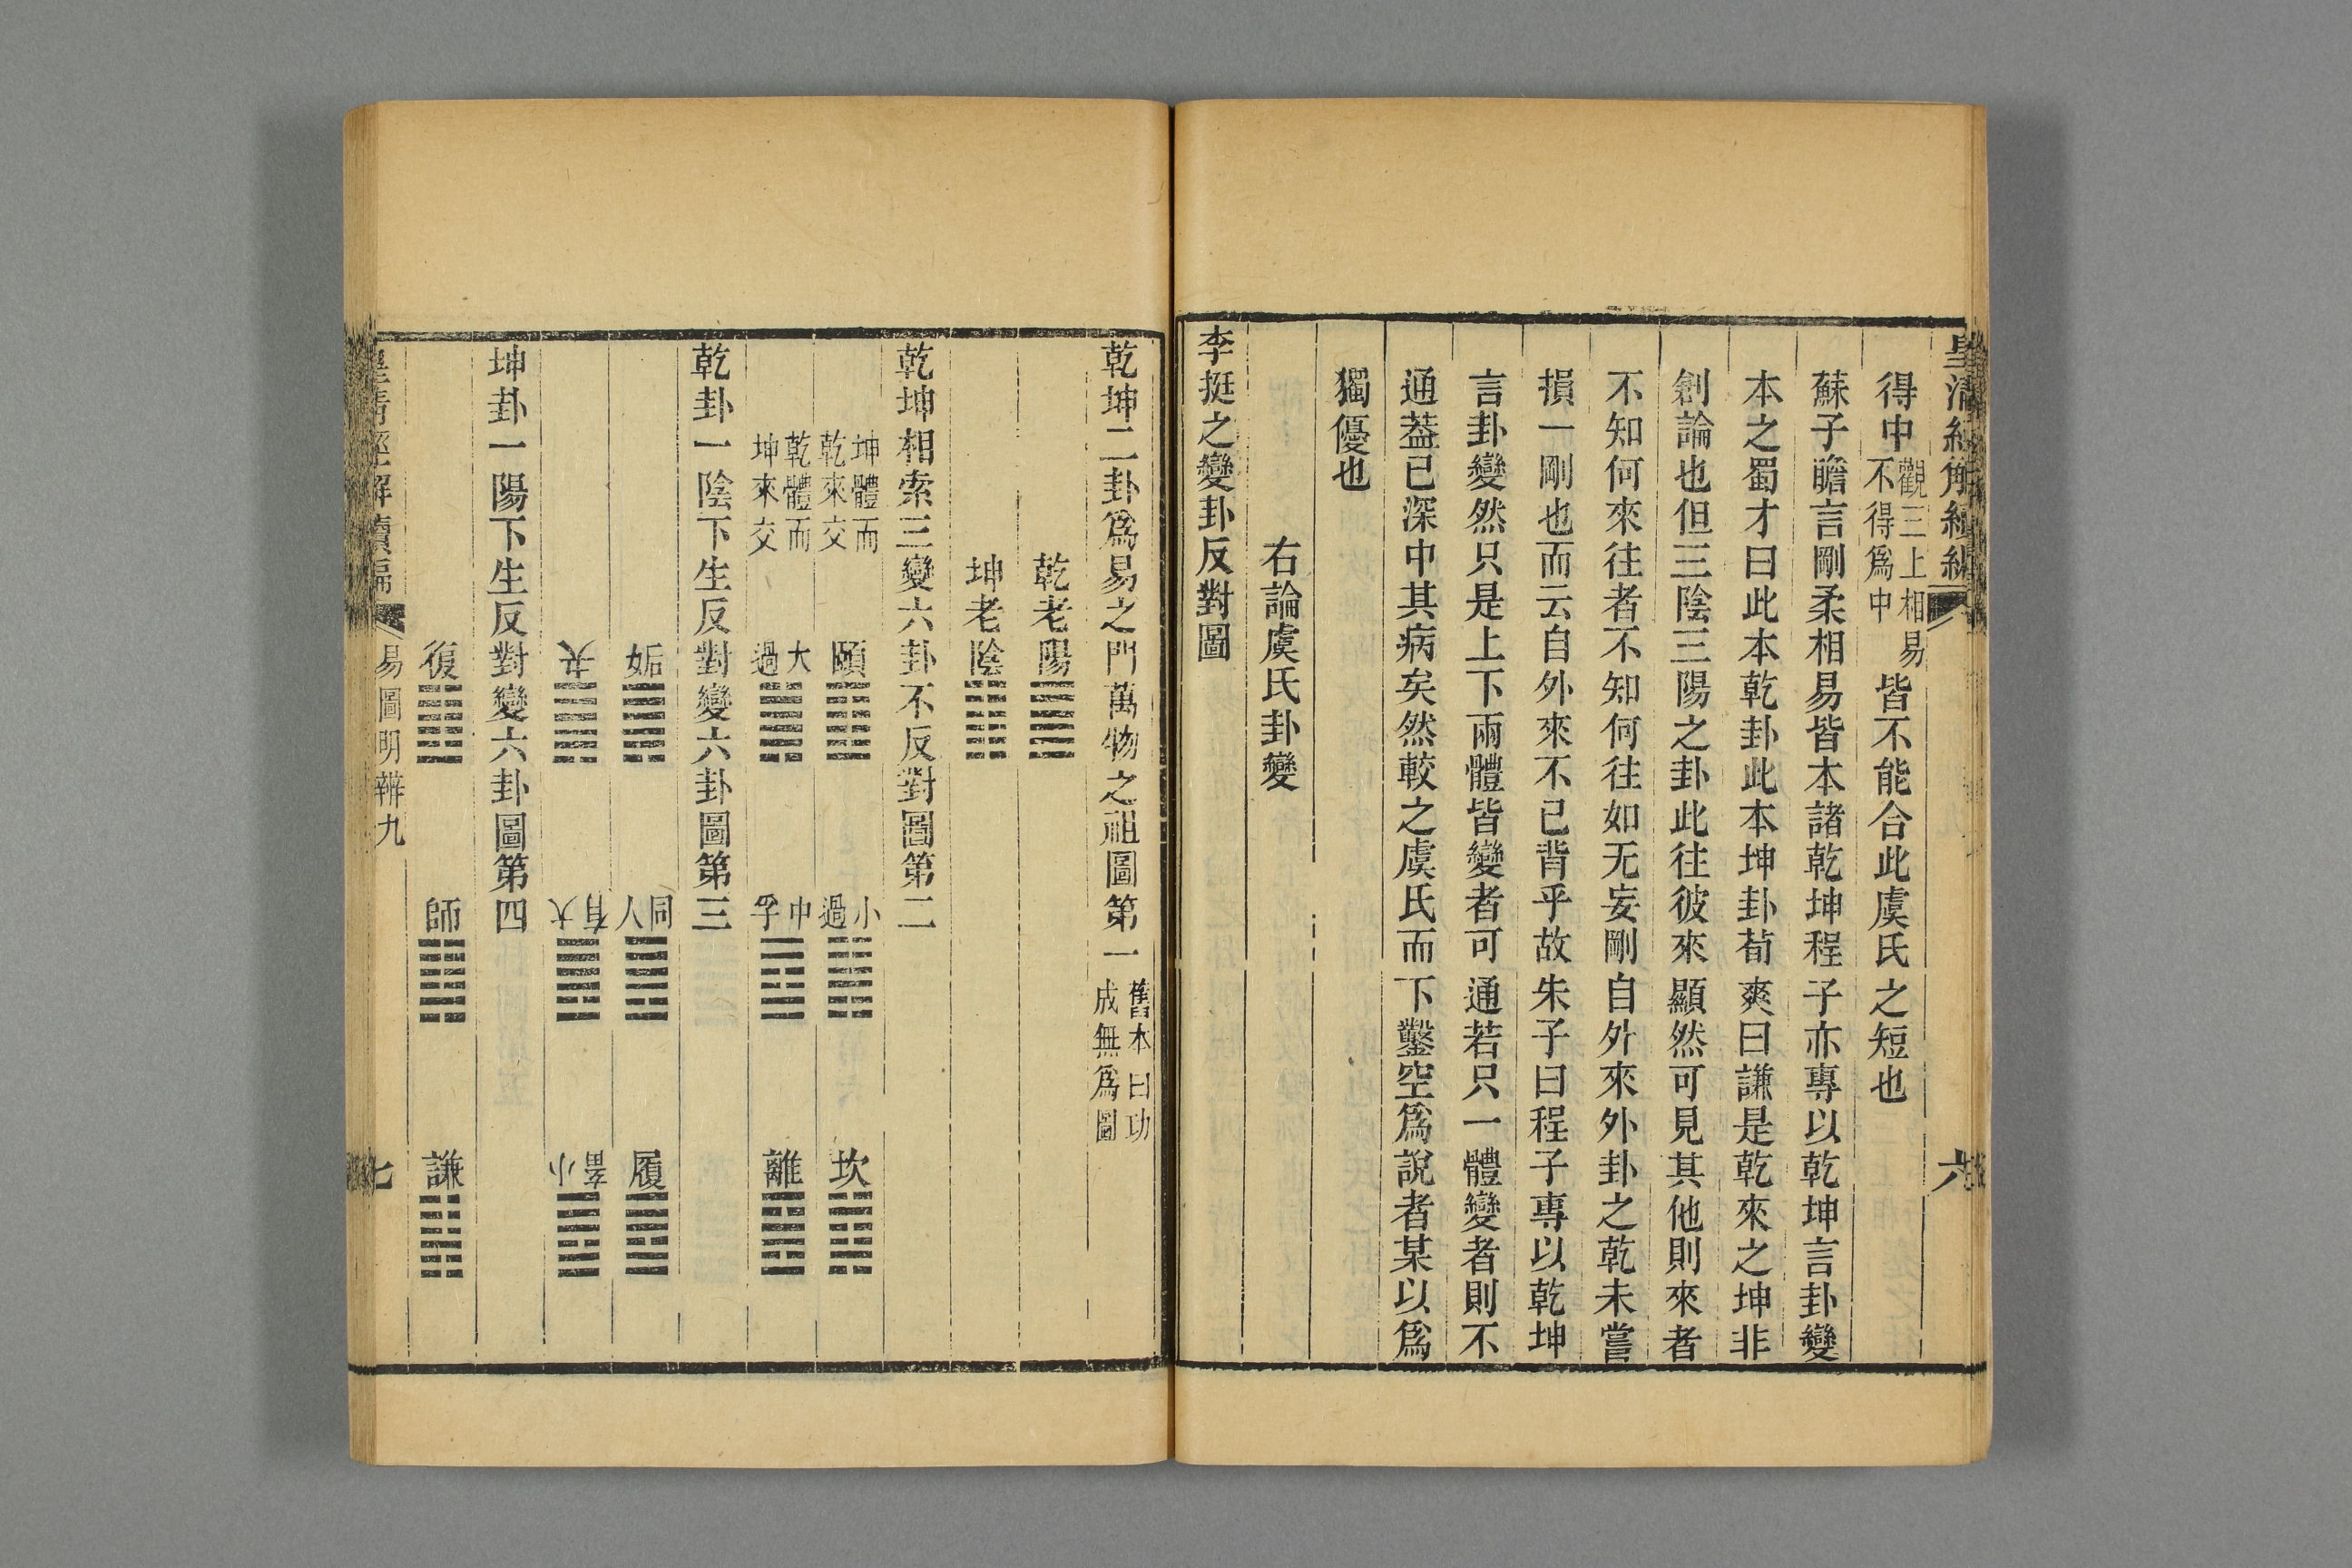 皇清經解續編
六
得中觀三上相易不得爲中皆不能合此虞氏之短也
蘇子瞻言剛柔相易皆本諸乾坤程子亦專以乾坤言卦變
本之蜀才曰此本乾卦此本坤卦荀爽曰謙是乾來之坤非
創論也但三陰三陽之卦此往彼來顯然可見其他則來者
不知何來往者不知何往如无妄剛自外來外卦之乾未嘗
損一剛也而云自外來不已背乎故朱子曰程子專以乾坤
言卦變然只是上下兩體皆變者可通若只一體變者則不
通葢已深中其病矣然較之虞氏而下鑿空爲說者某以爲
獨優也
右論虞氏卦變
李挺之變卦反對圖
乾坤二卦爲易之門萬物之祖圖第一舊本曰功成無爲圖
乾老陽䷀
坤老陰䷁
乾坤相索三變六卦不反對圖第二
坤體而乾來交 頤䷚ 小過䷽ 坎䷜
乾體而坤來交 大過䷛ 中孚䷼ 離䷝
乾卦一陰下生反對變六卦圖第三
姤䷫ 同人䷌ 履䷉
夬䷪ 大有䷍ 小畜䷈
坤卦一陽下生反對變六卦圖第四
復䷗ 師䷆ 謙䷎
皇清經解續編 易圖明辨九 七